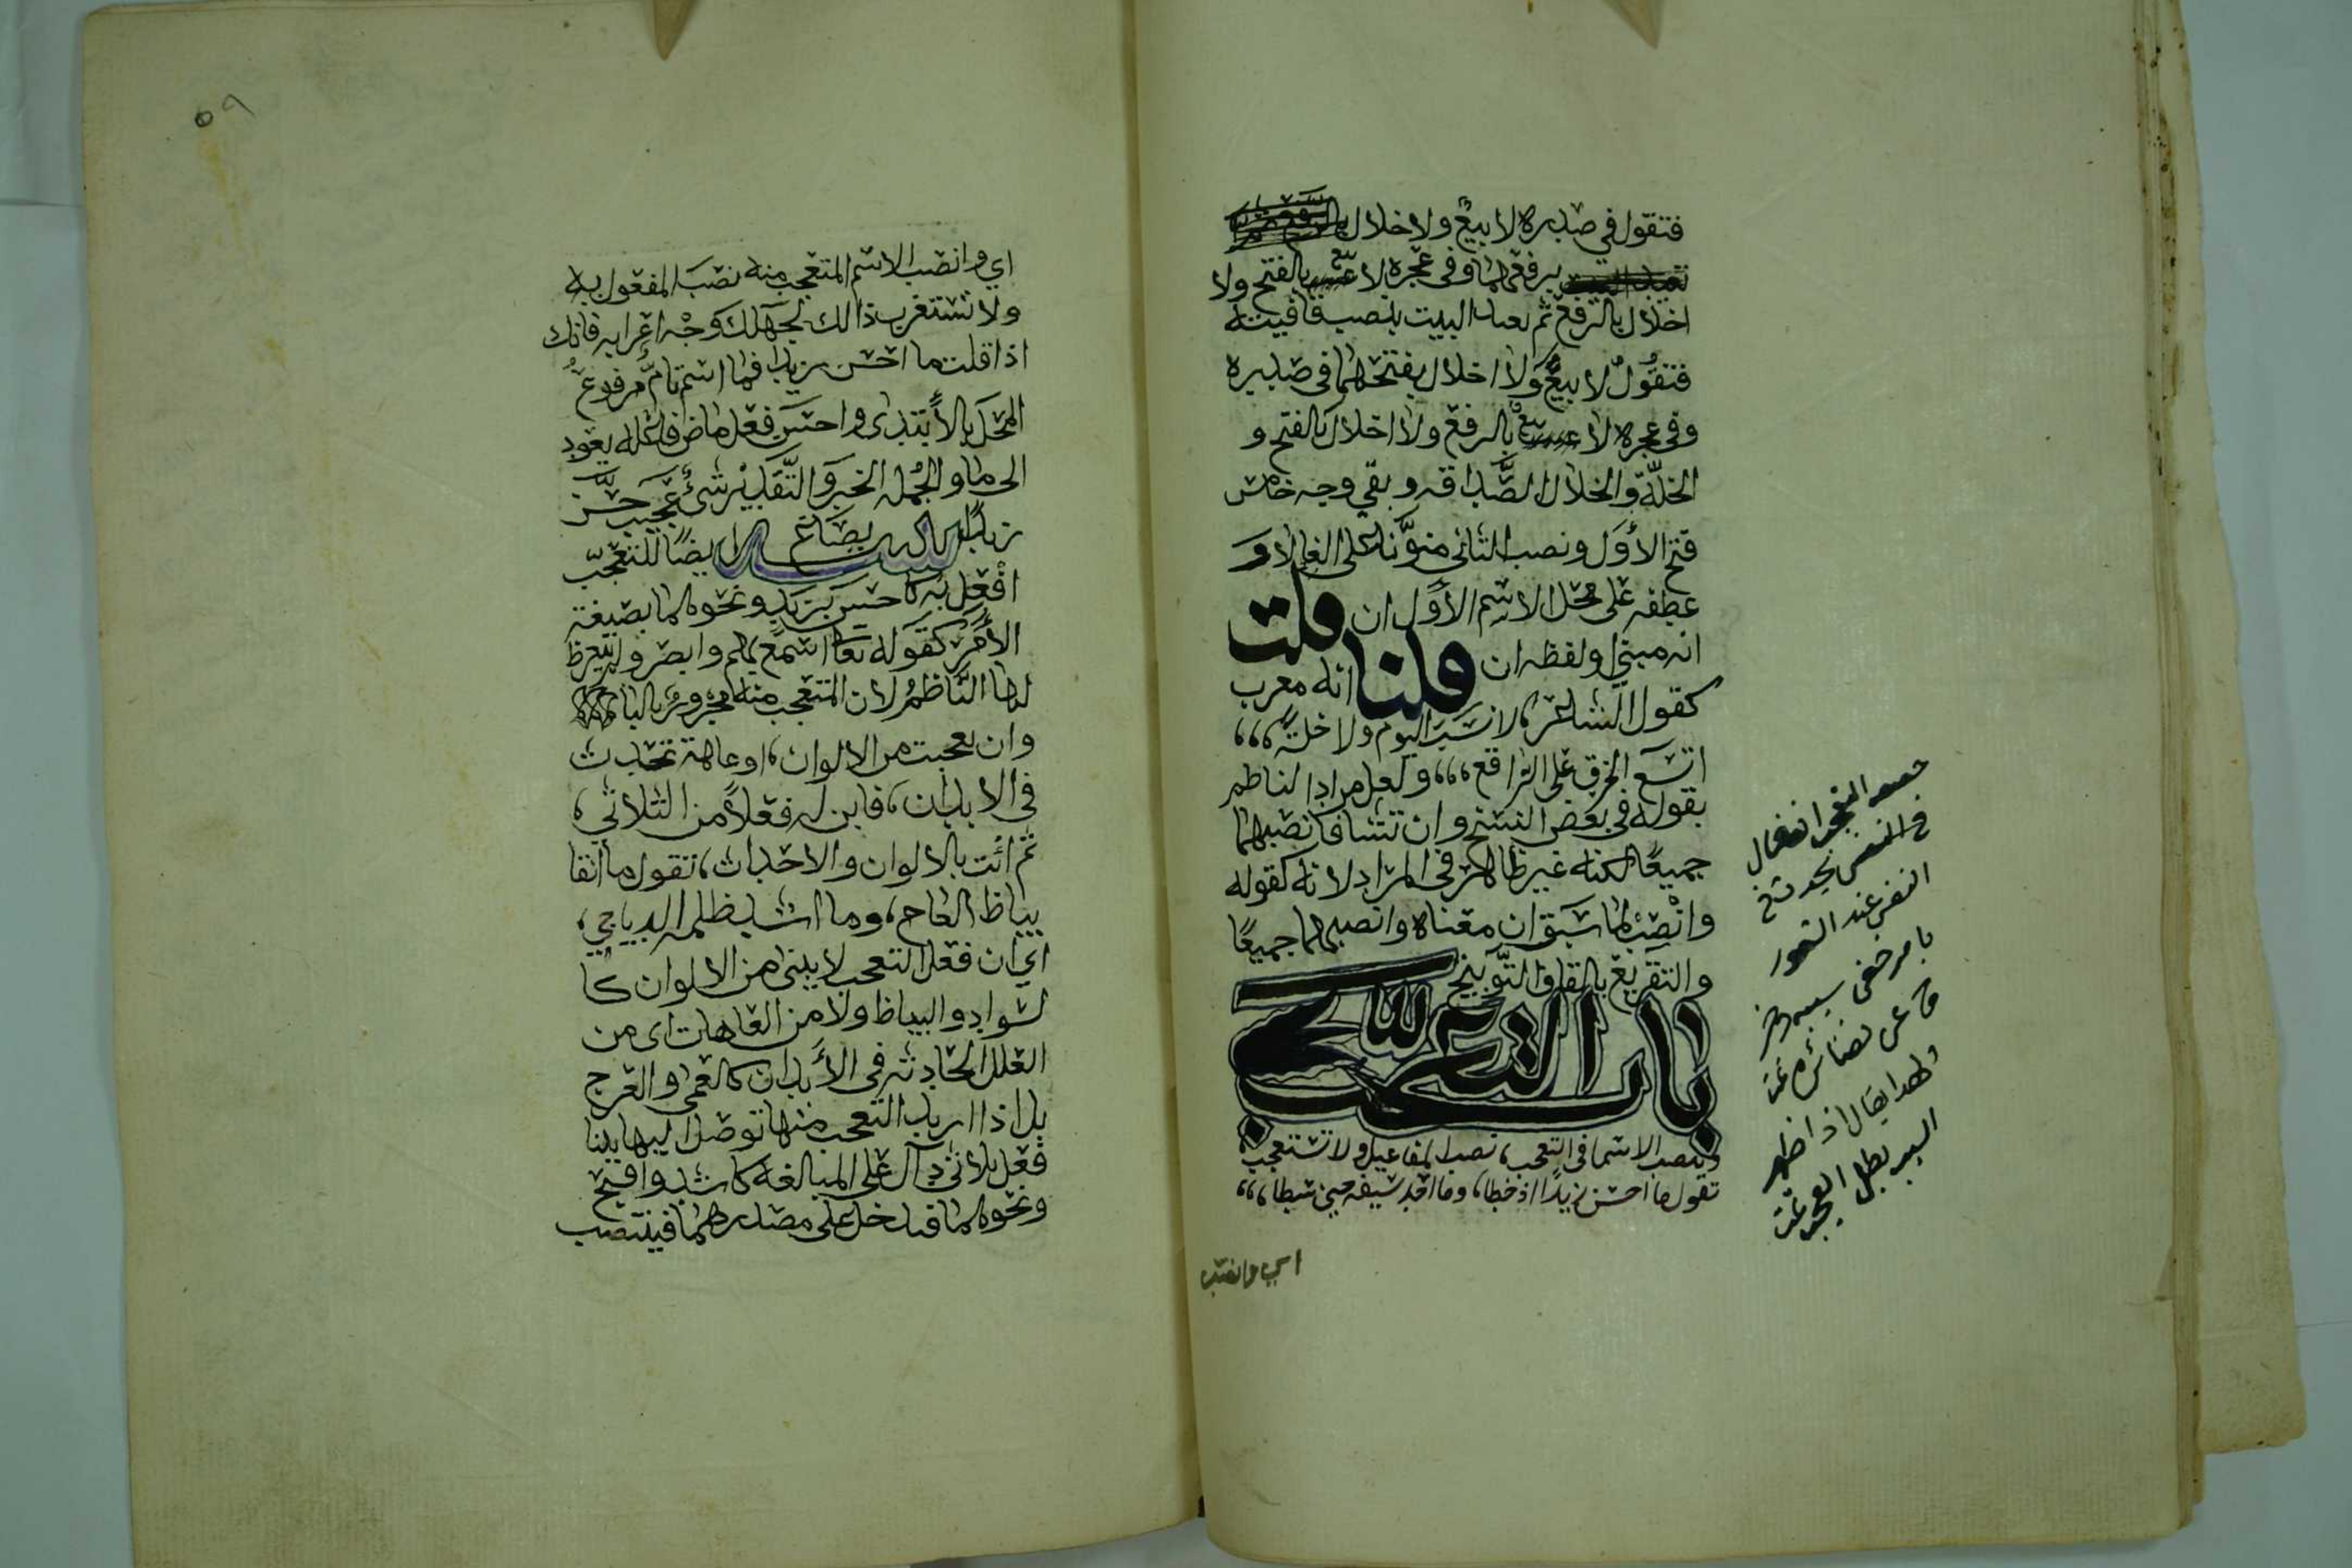 فتقول في صدره لا بيعٌ ولا خلال
برفعهما وفى عجزه لا بيع بالفتح ولا
اخلال بالرفع ثم البيت بنصب قافيته
فتقول لا بيع ولا اخلال بفتحهما في صدره
وفى عجزه لا بيع بالرفع ولا اخلال بالفتح و
الخلّة والخلال الصّداقه وبقي وجه خامس
فتح الأوّل ونصب الثاني منوّنا على الغا لا و
عطفه على محل الاسم الأوّل ان قلت
انه مبني ولفظه ان قلنا انه معرب
كقول الشاعر، لا نسَبَ اليوم ولا خلةً،،،
اتسَع الخرق على الراقع،،، ولعل مراد الناظم
بقوله في بعض النسخ وان تشا فانصبهما
جميعًا لكنه غير ظاهر في المراد لانه كقوله
وانْصبْ لما سَبَق ان معناه وانصبهما جميعًا
والتقريع بالقاف التّوبيخ
باب التعجب
وتنصب الاسما في التعجب، نصب المفاعيل ولا تستعجب،
تقول ما احسن زيدًا اذ خطا، وما احد سيفه حين سطا،،،
اي وانصب
التعجب انفعال
في النفس يحدث في
النفس عند الشعور
بامر خفي سببه وخر
ج عن نضائره تمت
ولهذا يقال اذا ظهر
السبب بطل العجب تمت
٥٩
اي وانصب الاسم المتعجب منه نصبَ المفعول به
ولا تستغرب ذالك لجهلك وجْه اعرابه فانك
اذا قلت ما احسن زيدا فما اسم تامٌّ مرفوعُ
المحَل بالأبتدى واحسَن فعل ماض فاعله يعود
الى ما والجُمله الخبر والتَّقديْر شئٌ عجيب حسَّن
زيدًا ايضًا للتعجّب
افْعِل به كاحسِن بزيدٍ ونحوهما بصيغة
الأمر كقوله تعا اسمع بهم وابصر ولم يتعرظ
لها النّاظمُ لان المتعجب منه مجرورٌ بالبا
وان تعجبت من الالوان، او عاهة تحدث
في الابدان، فابن له فعلاً من الثلاثي،
ثم ائت بالالوان والاحداث، تقول ما انقا
بياظ العاج، وما اشد ظلمه الدياجي،
اي ان فعل التعجب لا يبنى من الالوان كا
لسواد والبياظ ولا من العاهات اى من
العلل الحادثه في الأبدان كالعمى والعرج
بل اذا اريد التعجب منها توصل اليها ببنا
فعل ثلاثي دال على المبالغه كاشد واقبح
ونحوهما فيدخل على مصدرهما فينتصب